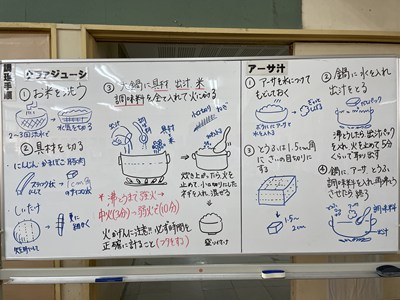 調理手順
クファジューシ
①お米をあらう
2~3回流水で
水気を切る
②具材を切る
にんじん かまぼこ 豚肉
1cm角
しいたけ
③大鍋に具材 出汁 米
調味料を全て入れて火にかける
具材
米
炊き上がったら火を
止めて、小口切りにした
ネギを入れ混ぜる
小口切り
ねぎ
*沸とうまで強火→
中火(3分)→弱火で(10分)
火かげんに注意!! 必ず時間を
正確に計ること(フタをする)
アーサ汁
①アーサを水につけて
もどしておく
②鍋に水を入れ
出汁をとる
出汁パック
沸とうしたら出汁パック
を入れ、火を止めて5分
くらいで取り出す
③とうふは1.5cm角
にさいの目切りに
する
1.5~
2cm
④鍋に、アーサ、とうふ
調味料を入れ、再沸とう
させたら終了
調味料
出汁